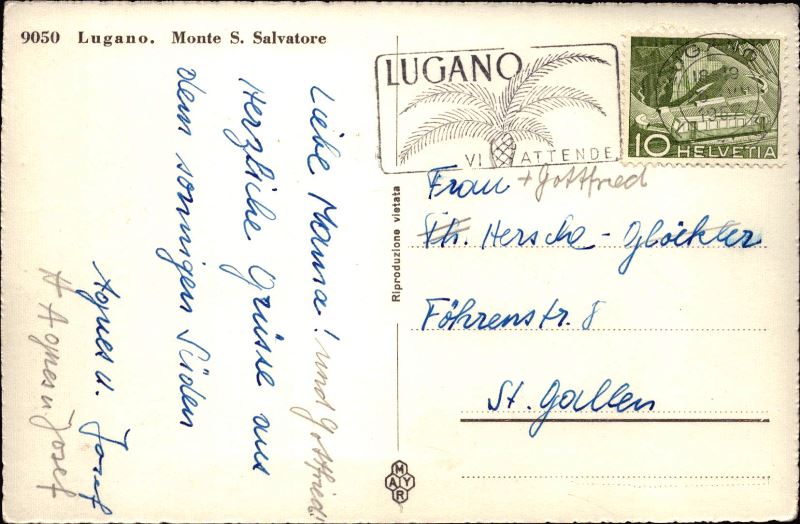 9050 Lugano. Monte S. Salvatore
LUGANO
VI ATTENDE
LUGANO
10 HELVETIA
Liebe Mama! und Gottfried!
Herzliche Grüsse aus
dem sonnigen Süden
Agnes u. Josef
# Agnes u Josef
Riproduzione vietata
MAYR
Frau + Gottfried
Th. Hersche - Glöckler
Föhrenstr. 8
St. Gallen